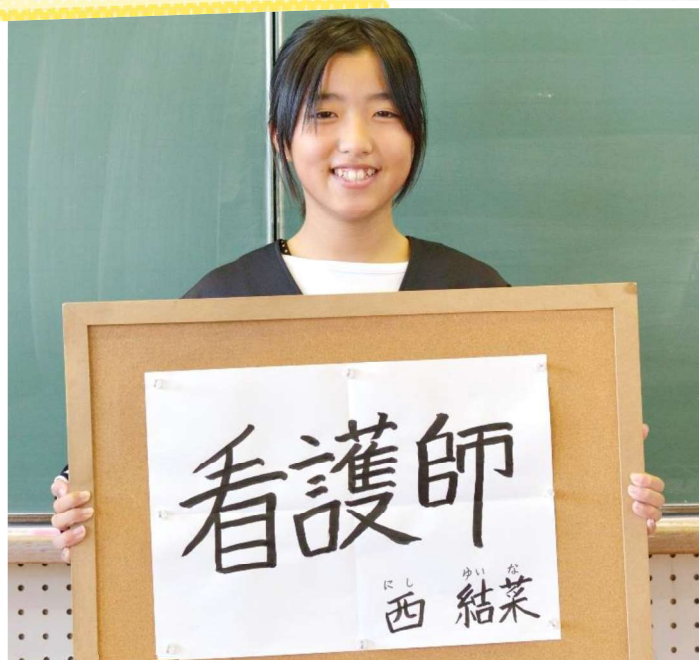 看護師
にし ゆいな
西 結菜